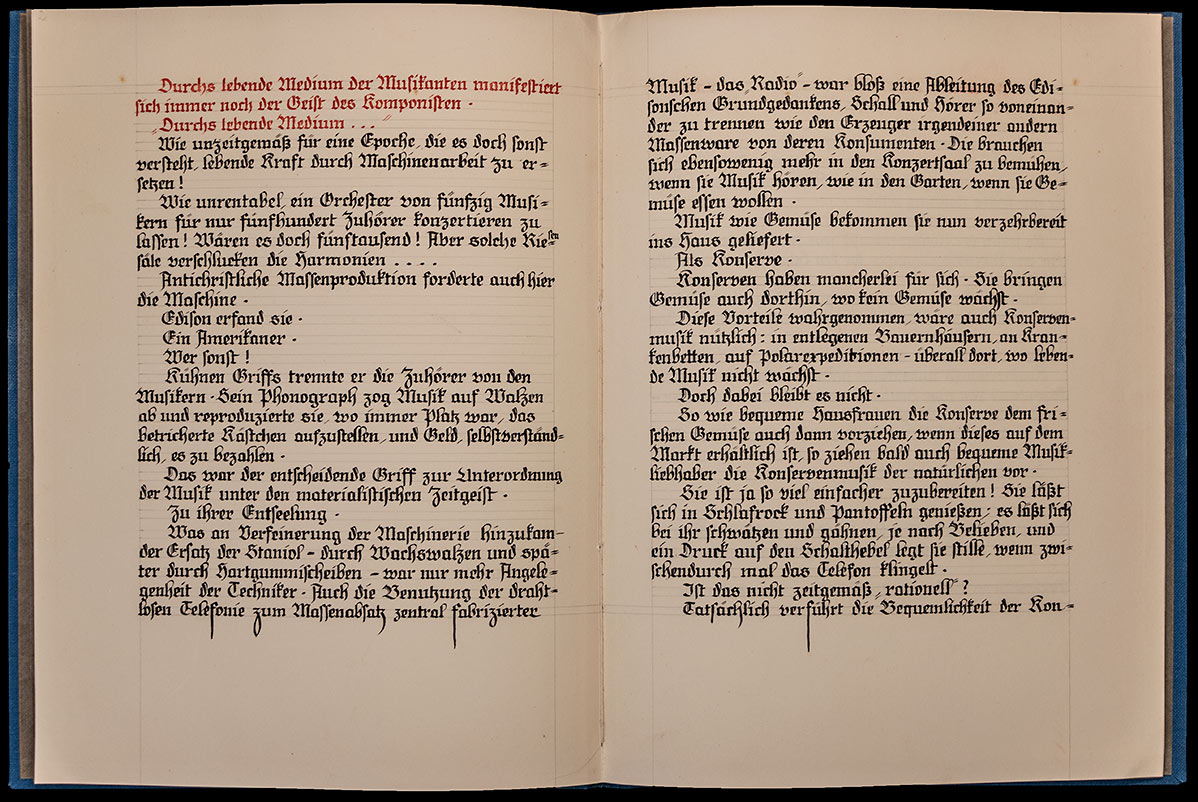 Durchs lebende Medium der Musikanten manifestiert
sich immer noch der Geist des Komponisten ·
„Durchs lebende Medium . . .“
Wie unzeitgemäß für eine Epoche, die es doch sonst
versteht, lebende Kraft durch Maschinenarbeit zu er=
setzen!
Wie unrentabel, ein Orchester von fünfzig Musi=
kern für nur fünfhundert Zuhörer konzertieren zu
lassen! Wären es doch fünftausend! Aber solche Riesen=
säle verschlucken die Harmonien . . . .
Antichristliche Massenproduktion forderte auch hier
die Maschine ·
Edison erfand sie ·
Ein Amerikaner ·
Wer sonst!
Kühnen Griffs trennte er die Zuhörer von den
Musikern · Sein Phonograph zog Musik auf Walzen
ab und reproduzierte sie, wo immer Platz war, das
betrichterte Kästchen aufzustellen, und Geld, selbstverständ=
lich, es zu bezahlen ·
Das war der entscheidende Griff zur Unterordnung
der Musik unter den materialistischen Zeitgeist ·
Zu ihrer Entseelung ·
Was an Verfeinerung der Maschinerie hinzukam–
der Ersatz der Staniol – durch Wachswalzen und spä=
ter durch Hartgummischeiben – war nur mehr Angele=
genheit der Techniker · Auch die Benutzung der draht=
losen Telefonie zum Massenabsatz zentral fabrizierter
Musik – das „Radio“ – war bloß eine Ableitung des Edi=
sonschen Grundgedankens, Schall und Hörer so voneinan=
der zu trennen wie den Erzeuger irgendeiner andern
Massenware von deren Konsumenten · Die brauchen
sich ebensowenig mehr in den Konzertsaal zu bemühen,
wenn sie Musik hören, wie in den Garten, wenn sie Ge=
müse essen wollen ·
Musik wie Gemüse bekommen sie nun verzehrbereit
ins Haus geliefert ·
Als Konserve ·
Konserven haben mancherlei für sich · Sie bringen
Gemüse auch dorthin, wo kein Gemüse wächst ·
Diese Vorteile wahrgenommen, wäre auch Konserven=
musik nützlich: in entlegenen Bauernhäusern, an Kran=
kenbetten, auf Polarexpeditionen – überall dort, wo leben=
de Musik nicht wächst ·
Doch dabei bleibt es nicht ·
So wie bequeme Hausfrauen die Konserve dem fri=
schen Gemüse auch dann vorziehen, wenn dieses auf dem
Markt erhältlich ist, so ziehen bald auch bequeme Musik=
liebhaber die Konservenmusik der natürlichen vor ·
Sie ist ja so viel einfacher zuzubereiten! Sie läßt
sich in Schlafrock und Pantoffeln genießen; es läßt sich
bei ihr schwätzen und gähnen, je nach Belieben, und
ein Druck auf den Schalthebel legt sie stille, wenn zwi=
schendurch mal das Telefon klingelt ·
Ist das nicht zeitgemäß „rationell“?
Tatsächlich verführt die Bequemlichkeit der Kon=